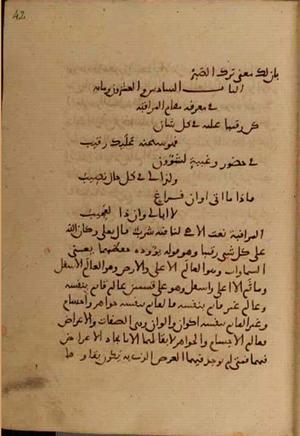 42
بان لك معنى ترك الصبر
الباب السادس والعشرون ومائة
في معرفة مقام المراقبة
كن رقيبا عليه في كل شان
فهو سبحنه عليك رقيب
في حضور وغيبة لشؤون
ولذا لي في كل حال نصيب
ماذا ما اتى اوان فراغ
لا ابالي وان ذا لعجيب
المراقبة نعت الاهي لنا فيه شرب قال تعلى وكان الله
على كل شي رقيبا وهو قوله يؤوده حفظهما يعني
السماوات وهو العالم الاعلى والارض وهو العالم الاسفل
وما ثم الا اعلى واسفل وهو على قسمين عالم قائم بنفسه
وعالم غير قائم بنفسه فالقائم بنفسه جواهر واجسام
وغير القائم بنفسه اكوان والوان وهي الصفات والاعراض
فعالم الاجسام والجواهر لا بقا لهما الا بايجاد الاعراض
فيهما فمتى لم يوجد فيهما العرض الذي به يكون بقاوها